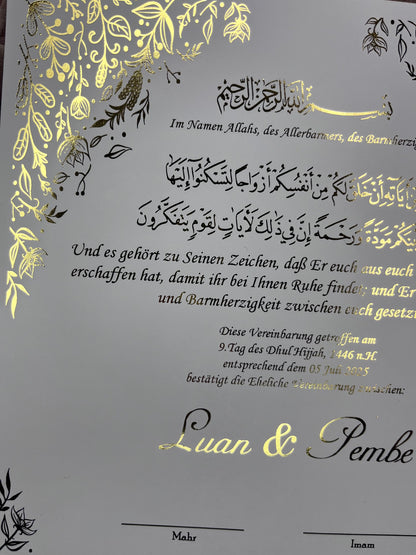 بسم الله الرحمن الرحيم
Im Namen Allahs, des Allerbarmers, des Barmherzig
آيَاتِهِ أَنْ خَلَقَ لَكُم مِّنْ أَنفُسِكُمْ أَزْوَاجًا لِّتَسْكُنُوا إِلَيْهَا
بَيْنَكُم مَّوَدَّةً وَرَحْمَةً إِنَّ فِي ذَٰلِكَ لَآيَاتٍ لِّقَوْمٍ يَتَفَكَّرُونَ
Und es gehört zu Seinen Zeichen, daß Er euch aus euch
erschaffen hat, damit ihr bei Ihnen Ruhe findet; und Er
und Barmherzigkeit zwischen euch gesetz
Diese Vereinbarung getroffen am
9.Tag des Dhul Hijjah, 1446 n.H.
entsprechend dem 05 Juli 2025
bestätigt die Eheliche Vereinbarung zwischen:
Luan & Pembe
Mahr
Imam